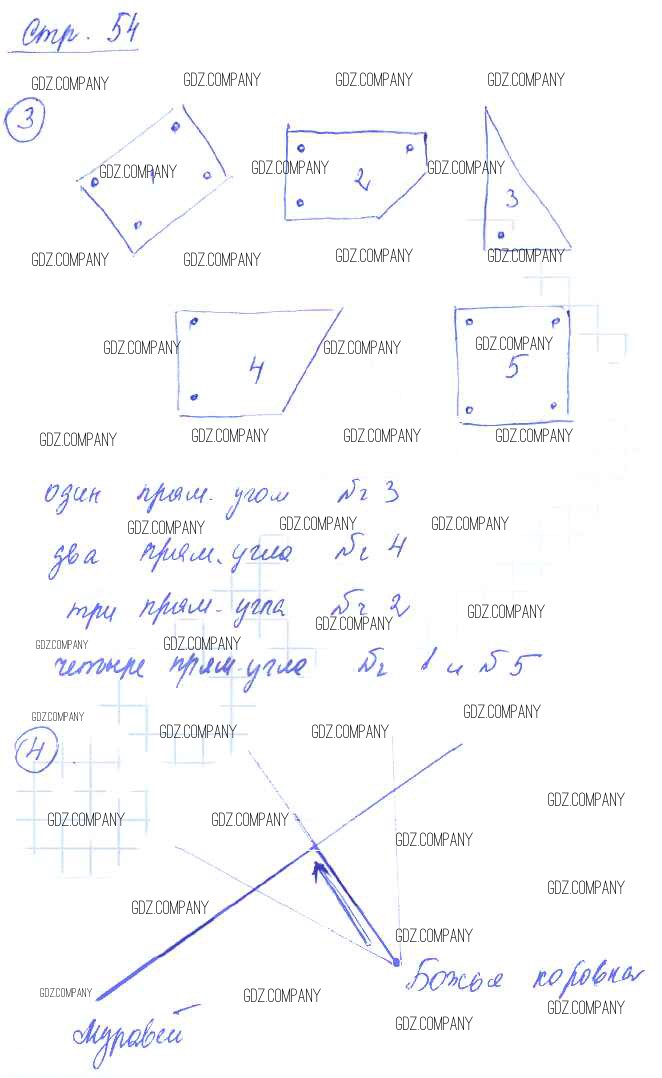 Стр. 54
GDZ.COMPANY GDZ.COMPANY GDZ.COMPANY GDZ.COMPANY
3
GDZ.COMPANY 1 GDZ.COMPANY 2 GDZ.COMPANY 3
GDZ.COMPANY GDZ.COMPANY GDZ.COMPANY GDZ.COMPANY
GDZ.COMPANY 4 GDZ.COMPANY GDZ.COMPANY 5
GDZ.COMPANY GDZ.COMPANY GDZ.COMPANY GDZ.COMPANY
один прям. угол № 3
GDZ.COMPANY GDZ.COMPANY GDZ.COMPANY
два прям. угла № 4
три прям. угла № 2
GDZ.COMPANY GDZ.COMPANY
GDZ.COMPANY GDZ.COMPANY
четыре прям. угла № 1 и № 5
GDZ.COMPANY GDZ.COMPANY
4 GDZ.COMPANY GDZ.COMPANY
GDZ.COMPANY
GDZ.COMPANY GDZ.COMPANY GDZ.COMPANY
GDZ.COMPANY
GDZ.COMPANY GDZ.COMPANY
GDZ.COMPANY
Божья коровка
GDZ.COMPANY GDZ.COMPANY GDZ.COMPANY
Муравей GDZ.COMPANY